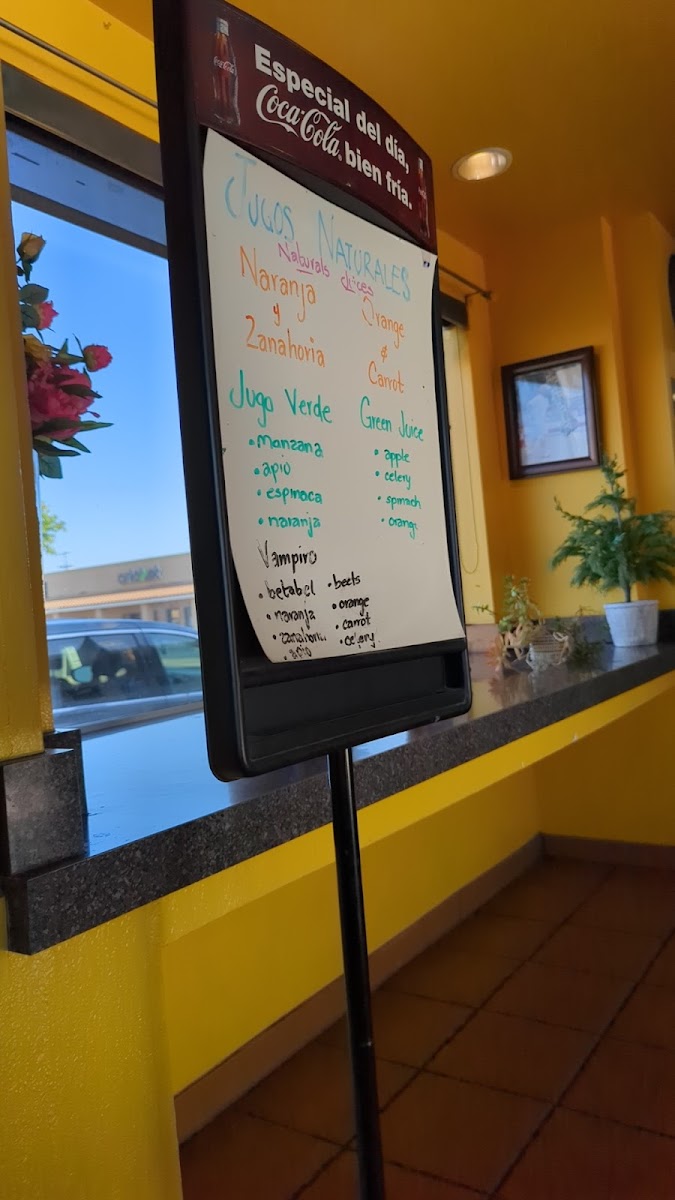 Especial del día,
Coca-Cola bien fría.
Jugos Naturales
Naturals Juices
Naranja
y
Zanahoria
Orange
&
Carrot
Jugo Verde
• manzana
• apio
• espinaca
• naranja
Green Juice
• apple
• celery
• spinach
• orange
Vampiro
• betabel
• naranja
• zanahoria
• apio
• beets
• orange
• carrot
• celery